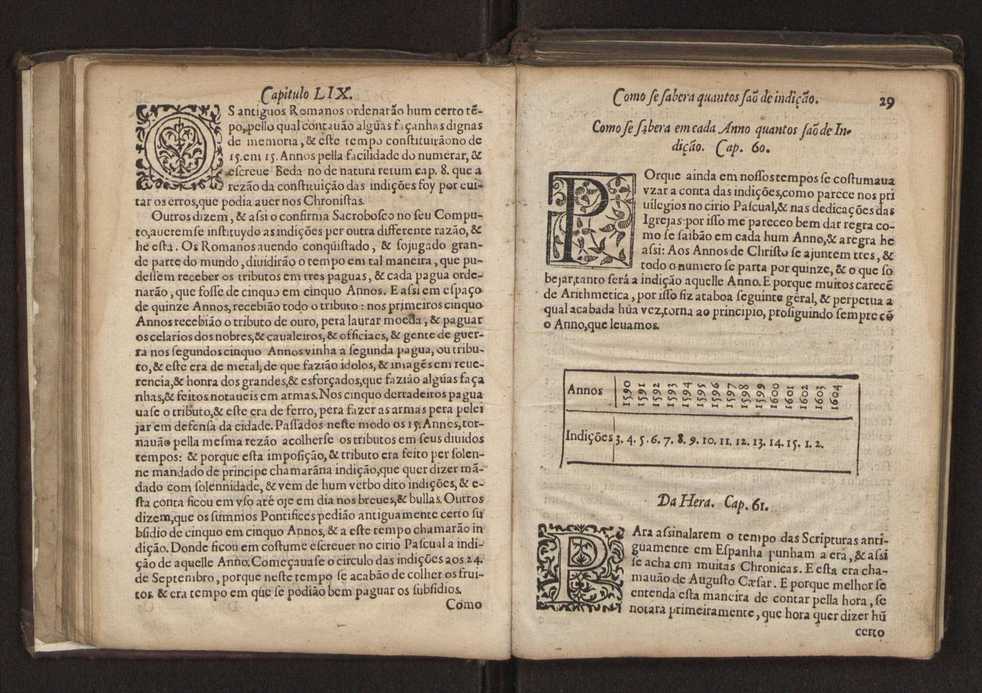 Capitulo LIX.
OS antiguos Romanos ordenarão hum certo tẽ-
po, pello qual contauão algũas façanhas dignas
de memoria, & este tempo constituirão no de
15. em 15. Annos pella facilidade do numerar, &
escreue Beda no de natura rerum cap. 8. que a
rezão da constituição das indições foy por eui-
tar os erros, que podia auer nos Chronistas.
Outros dizem, & assi o confirma Sacrobosco no seu Compu-
to, aueremse instituydo as indições por outra differente razão, &
he esta. Os Romanos auendo conquistado, & sojugado gran-
de parte do mundo, diuidirão o tempo em tal maneira, que pu-
dessem receber os tributos em tres paguas, & cada pagua orde-
narão, que fosse de cinquo em cinquo Annos. E assi em espaço
de quinze Annos, recebião todo o tributo: nos primeiros cinquo
Annos recebião o tributo de ouro, pera laurar moeda, & paguar
os celarios dos nobres, & caualeiros, & officiaes, & gente de guer-
ra nos segundos cinquo Annos vinha a segunda pagua, ou tribu-
to, & este era de metal, de que fazião idolos, & imagẽs em reue-
rencia, & honra dos grandes, & esforçados, que fazião algũas faça
nhas, & feitos notaueis em armas. Nos cinquo derradeiros pagua
uase o tributo, & este era de ferro, pera fazer as armas pera pelei
jar em defensa da cidade. Passados neste modo os 15. Annos, tor-
nauão pella mesma rezão acolherse os tributos em seus diuidos
tempos: & porque esta imposição, & tributo era feito per solen-
ne mandado de principe chamarãna indição, que quer dizer mã-
dado com solennidade, & vem de hum verbo dito indições, & e-
sta conta ficou em vso até oje em dia nos breues, & bullas. Outros
dizem, que os summos Pontifices pedião antiguamente certo su
bsidio de cinquo em cinquo Annos, & a este tempo chamarão in
dição. Donde ficou em costume escreuer no cirio Pascual a indi-
ção de aquelle Anno. Começauase o circulo das indições aos 24.
de Septembro, porque neste tempo se acabão de colher os frui-
tos. & era tempo em que se podião bem paguar os subsidios.
Como
Como se sabera quantos saõ de indição. 29
Como se sabera em cada Anno quantos saõ de In-
dição. Cap. 60.
POrque ainda em nossos tempos se costumaua
vzar a conta das indições, como parece nos pri
uilegios no cirio Pascual, & nas dedicações das
Igrejas: por isso me pareceo bem dar regra co-
mo se saibão em cada hum Anno, & a regra he
assi: Aos Annos de Christo se ajuntem tres, &
todo o numero se parta por quinze, & o que so
bejar, tanto será a indição aquelle Anno. E porque muitos carecẽ
de Arithmetica, por isso fiz a taboa seguinte géral, & perpetua a
qual acabada hũa vez, torna ao principio, prosiguindo sempre cõ
o Anno, que leuamos.
Annos 1590 1591 1592 1593 1594 1595 1596 1597 1598 1599 1600 1601 1602 1603 1604
Indições 3. 4. 5. 6. 7. 8. 9. 10. 11. 12. 13. 14. 15. 1. 2.
Da Hera. Cap. 61.
PAra assinalarem o tempo das Scripturas anti-
guamente em Espanha punham a era, & assi
se acha em muitas Chronicas. E esta era cha-
mauão de Augusto Cæsar. E porque melhor se
entenda esta maneira de contar pella hora, se
notara primeiramente, que hora quer dizer hũ
certo